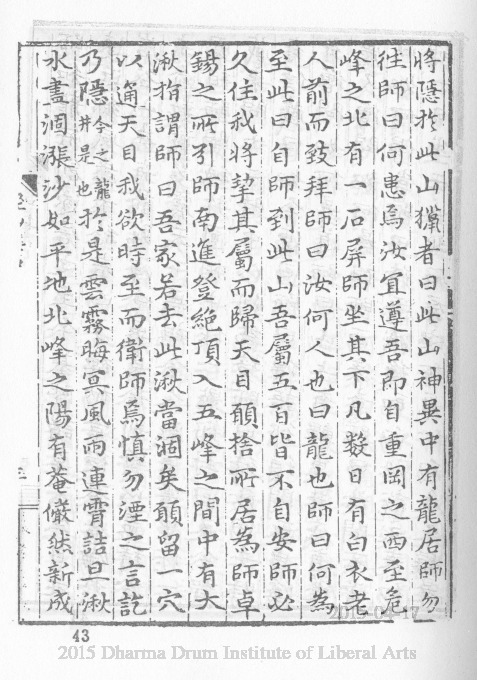 將隱於此山獵者曰此山神異中有龍居師勿
往師曰何患焉汝宜遵吾即自重岡之西至危
峰之北有一石屏師坐其下凡數日有白衣老
人前而致拜師曰汝何人也曰龍也師曰何為
至此曰自師到此山吾屬五百皆不自安師必
久住我將挈其屬而歸天目願捨所居為師卓
錫之所引師南進登絕頂入五峰之間中有大
湫指謂師曰吾家若去此湫當涸矣願留一穴
以通天目我欲時至而衛師焉慎勿湮之言訖
乃隱今之龍井是也於是雲霧晦冥風雨連霄詰旦湫
水盡涸漲沙如平地北峰之陽有菴儼然新成
43
2015 Dharma Drum Institute of Liberal Arts